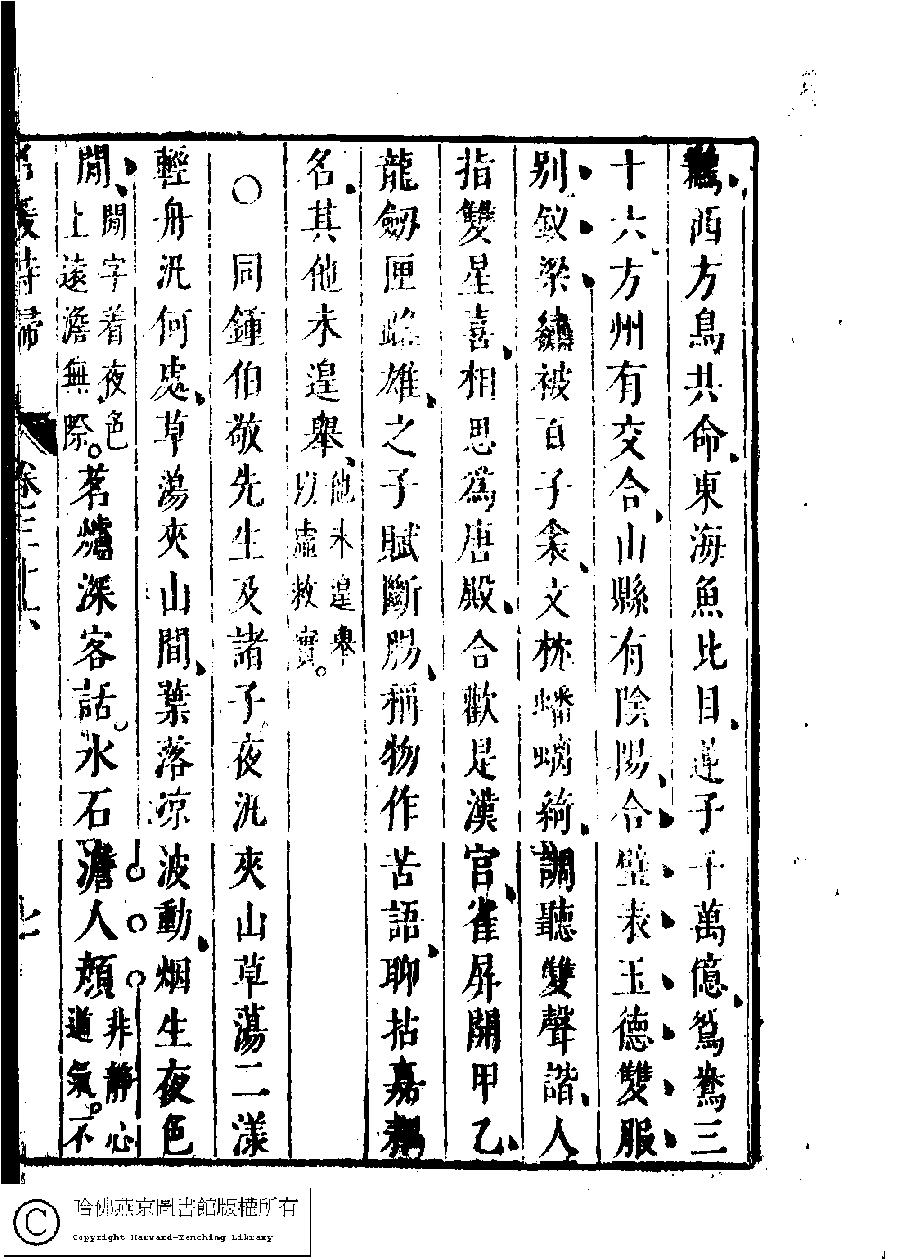 鶼西方鳥共命東海魚比目蓮子千萬億鴛鴦三
十六方州有交合山縣有陰陽合璧表玉德雙服
別釵梁繡被百子衾文枕蟠螭綺調聽雙聲諧人
指雙星喜相思為唐殿合歡是漢官雀屏開甲乙
龍劒匣雌雄之子賦斷腸稱物作苦語聊拈嘉耦
名其他未遑舉他未遑舉以虛救實。
○同鍾伯敬先生及諸子夜汎夾山草蕩二漾
輕舟汎何處草蕩夾山間葉落凉波動烟生夜色
閒閒字着夜色上遠澹無際。茗爐深客話水石澹人顏非靜心道氣。不
名媛詩歸
卷三十六
七
哈佛燕京圖書館版權所有
Copyright Harvard-Yenching Library